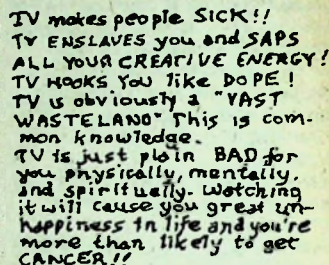 TV makes people SICK!!
TV ENSLAVES you and SAPS
ALL YOUR CREATIVE ENERGY!
TV HOOKS YOU like DOPE!
TV is obviously a "VAST
WASTELAND" This is com-
mon knowledge.
TV is just plain BAD for
you physically, mentally,
and spiritually. Watching
it will cause you great un-
happiness in life and you're
more than likely to get
CANCER!!